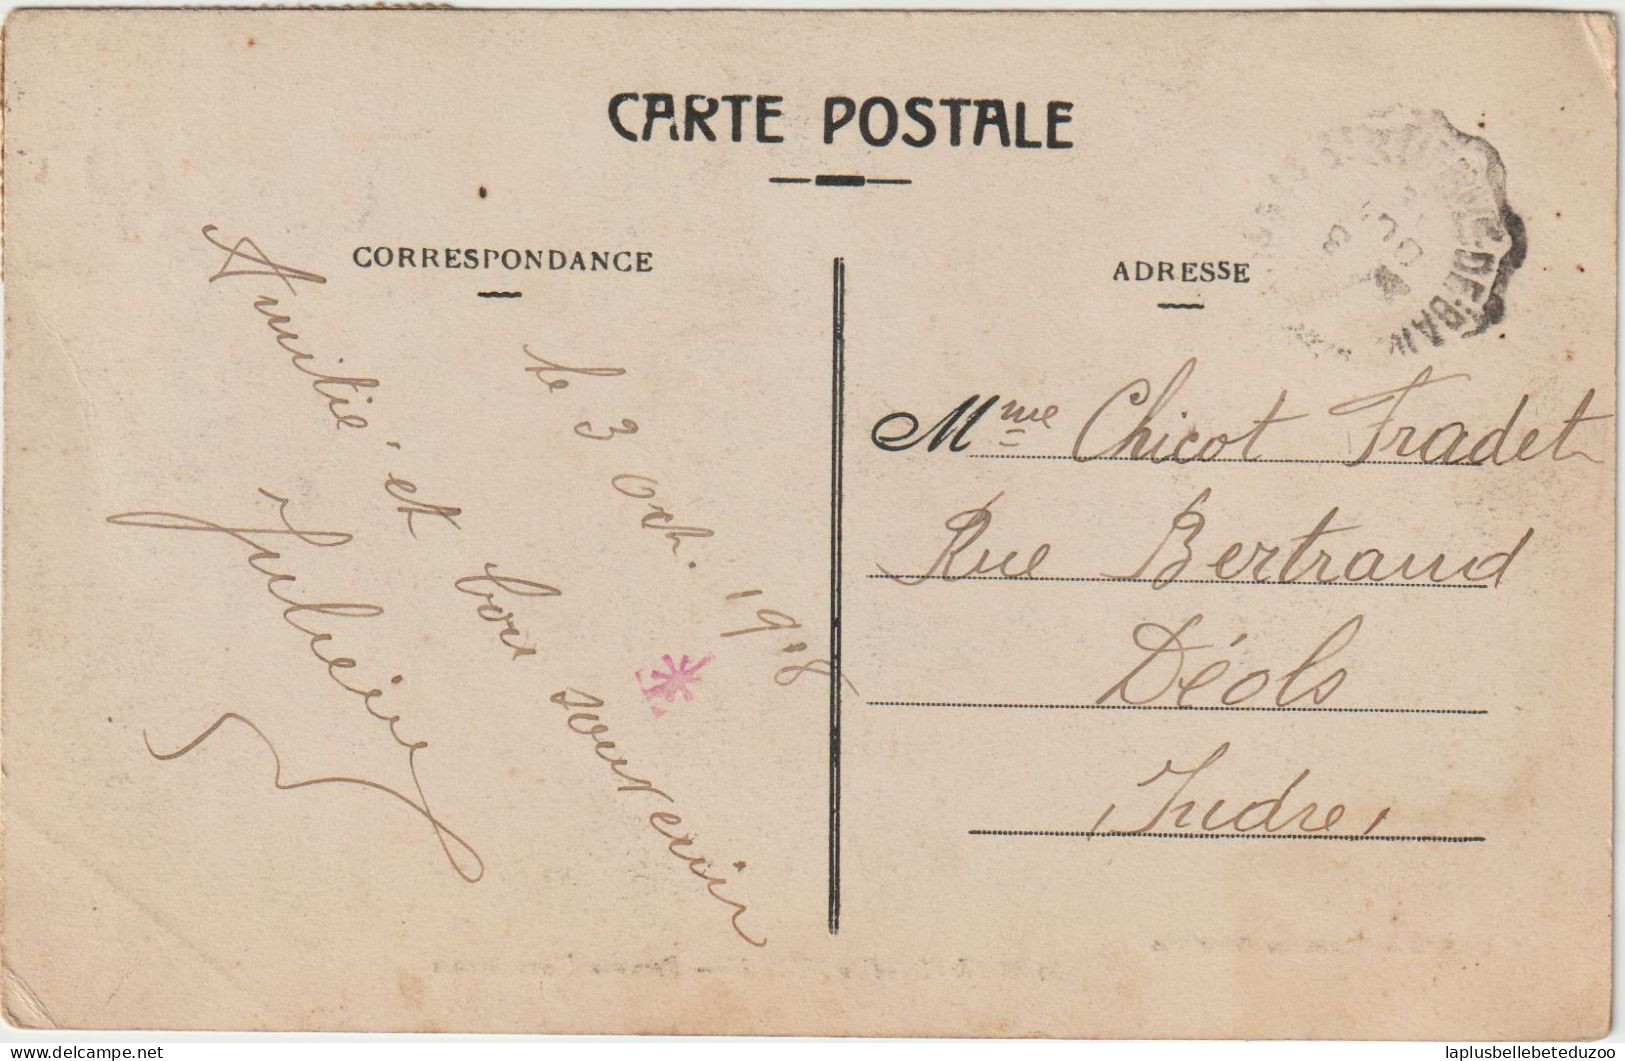 CARTE POSTALE
CORRESPONDANCE
ADRESSE
le 3 Oct. 1918
Amitié et bon souvenir
Mme Chicot Fradet
Rue Bertrand
Déols
Indre
DE BAN
laplusbellebeteduzoo